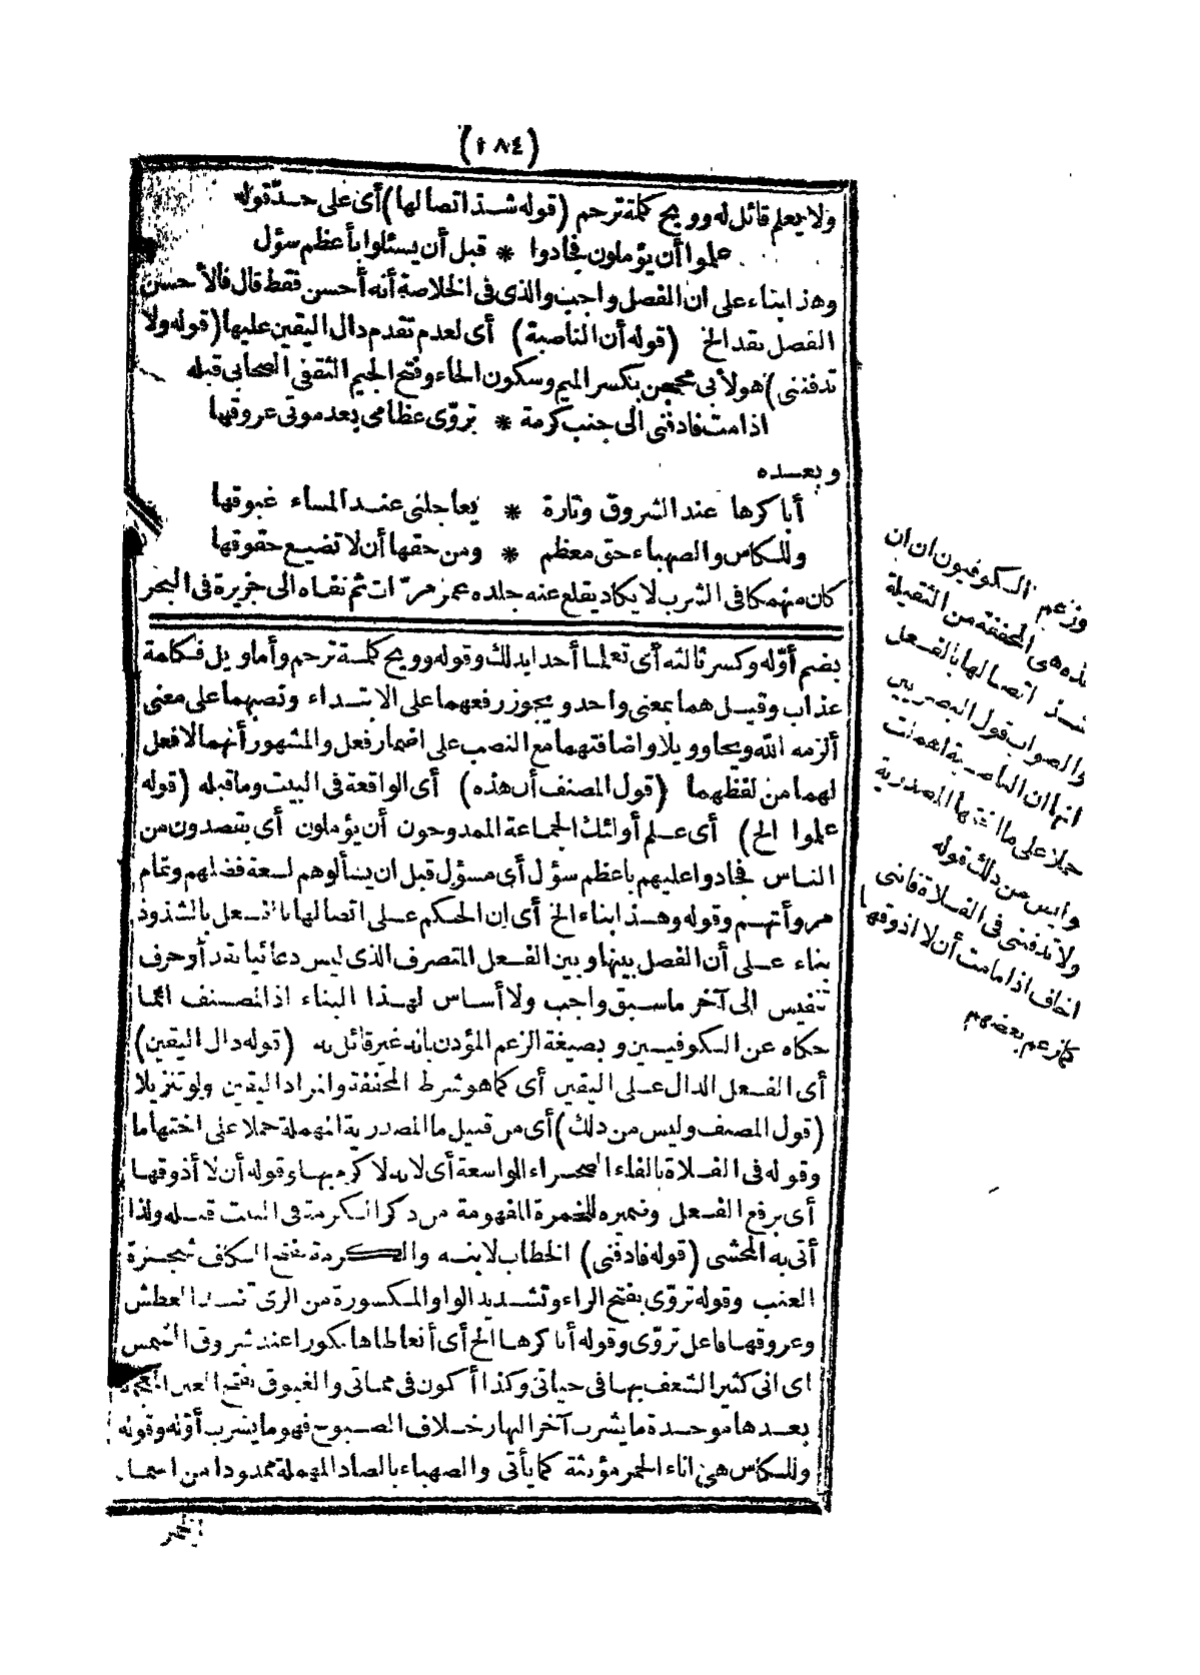 (١٨٤)
ولا يعلم قائل له وويح كلمة ترحم (قوله شذ اتصالها) أى على حدّ قوله
علموا أن يؤملون فجادوا * قبل أن يسئلوا بأعظم سؤل
وهذا بناء على ان الفصل واجب والذى فى الخلاصة أنه أحسن فقط قال فالأحسن
الفصل بقد الخ (قوله أن الناصبة) أى لعدم تقدم دال اليقين عليها (قوله ولا
تدفننى) هو لأبى محجن بكسر الميم وسكون الحاء وفتح الجيم الثقفى الصحابى قبله
اذا مت فادفنى الى جنب كرمة * تروّى عظامى بعد موتى عروقها
وبعده
أباكرها عند الشروق وتارة * يعاجلنى عند المساء غبوقها
وللكاس والصهباء حتى معظم * ومن حقها أن لا تضيع حقوقها
كان منهمكا فى الشرب لا يكاد يقلع عنه جلده عمر مرّات ثم نفاه الى جزيرة فى البحر
بضم أوّله وكسر ثالثه أى تعلما أحدا بذلك وقوله وويح كلمة ترحم وأما ويل فكلمة
عذاب وقيل هما بمعنى واحد ويجوز رفعهما على الابتداء ونصبهما على معنى
ألزمه الله ويحا وويلا واضافتهما مع النصب على اضمار فعل والمشهور أنهما لا فعل
لهما من لفظهما (قول المصنف أن هذه) أى الواقعة فى البيت وما قبله (قوله
علموا الخ) أى علم أولئك الجماعة الممدوحون أن يؤملون أى يقصدون من
الناس فجادوا عليهم بأعظم سؤل أى مسؤل قبل ان يسألوهم لسعة فضلهم وتمام
مروأتهم وقوله وهذا بناء الخ أى ان الحكم على اتصالها بالفعل بالشذوذ
بناء على أن الفصل بينها وبين الفعل المتصرف الذى ليس دعائيا بقد أو حرف
تنفيس الى آخر ما سبق واجب ولا أساس لهذا البناء اذ المصنف انما
حكاه عن الكوفيين وبصيغة الزعم المؤذن بأنه غير قائل به (قوله دال اليقين)
أى الفعل الدال على اليقين أى كما هو شرط المخففة والمراد اليقين ولو تنزيلا
(قول المصنف وليس من ذلك) أى من قبيل ما المصدرية المهملة حملا على اختها ما
وقوله فى الفلاة بالفاء الصحراء الواسعة أى لانه لا كرم بها وقوله أن لا أذوقها
أى برفع الفعل وضميره للخمرة المفهومة من ذكر الكرمة فى البيت قبله ولذا
أتى به المحشى (قوله فادفنى) الخطاب لابنه والكرمة بفتح الكاف شجرة
العنب وقوله تروّى بفتح الراء وتشديد الواو المكسورة من الرى ضد العطش
وعروقها فاعل تروّى وقوله أباكرها الخ أى أتعاطاها بكورا عند شروق الشمس
اى انى كثير الشغف بها فى حياتى وكذا أكون فى مماتى والغبوق بفتح الغين المعجمة
بعدها موحدة ما يشرب آخر النهار خلاف الصبوح فهو ما يشرب أوّله وقوله
وللكاس هى اناء الخمر مؤنثة كما يأتى والصهباء بالصاد المهملة ممدودا من اسماء
الخمر
وزعم الكوفيون ان أن
هذه هى المخففة من الثقيلة
شذ اتصالها بالفعل
والصواب قول البصريين
انها ان الناصبة اهملت
حملا على ما اختها المصدرية
وليس من ذلك قوله
ولا تدفننى فى الفلاة فاننى
اخاف اذا مامت أن لا اذوقها
كما زعم بعضهم